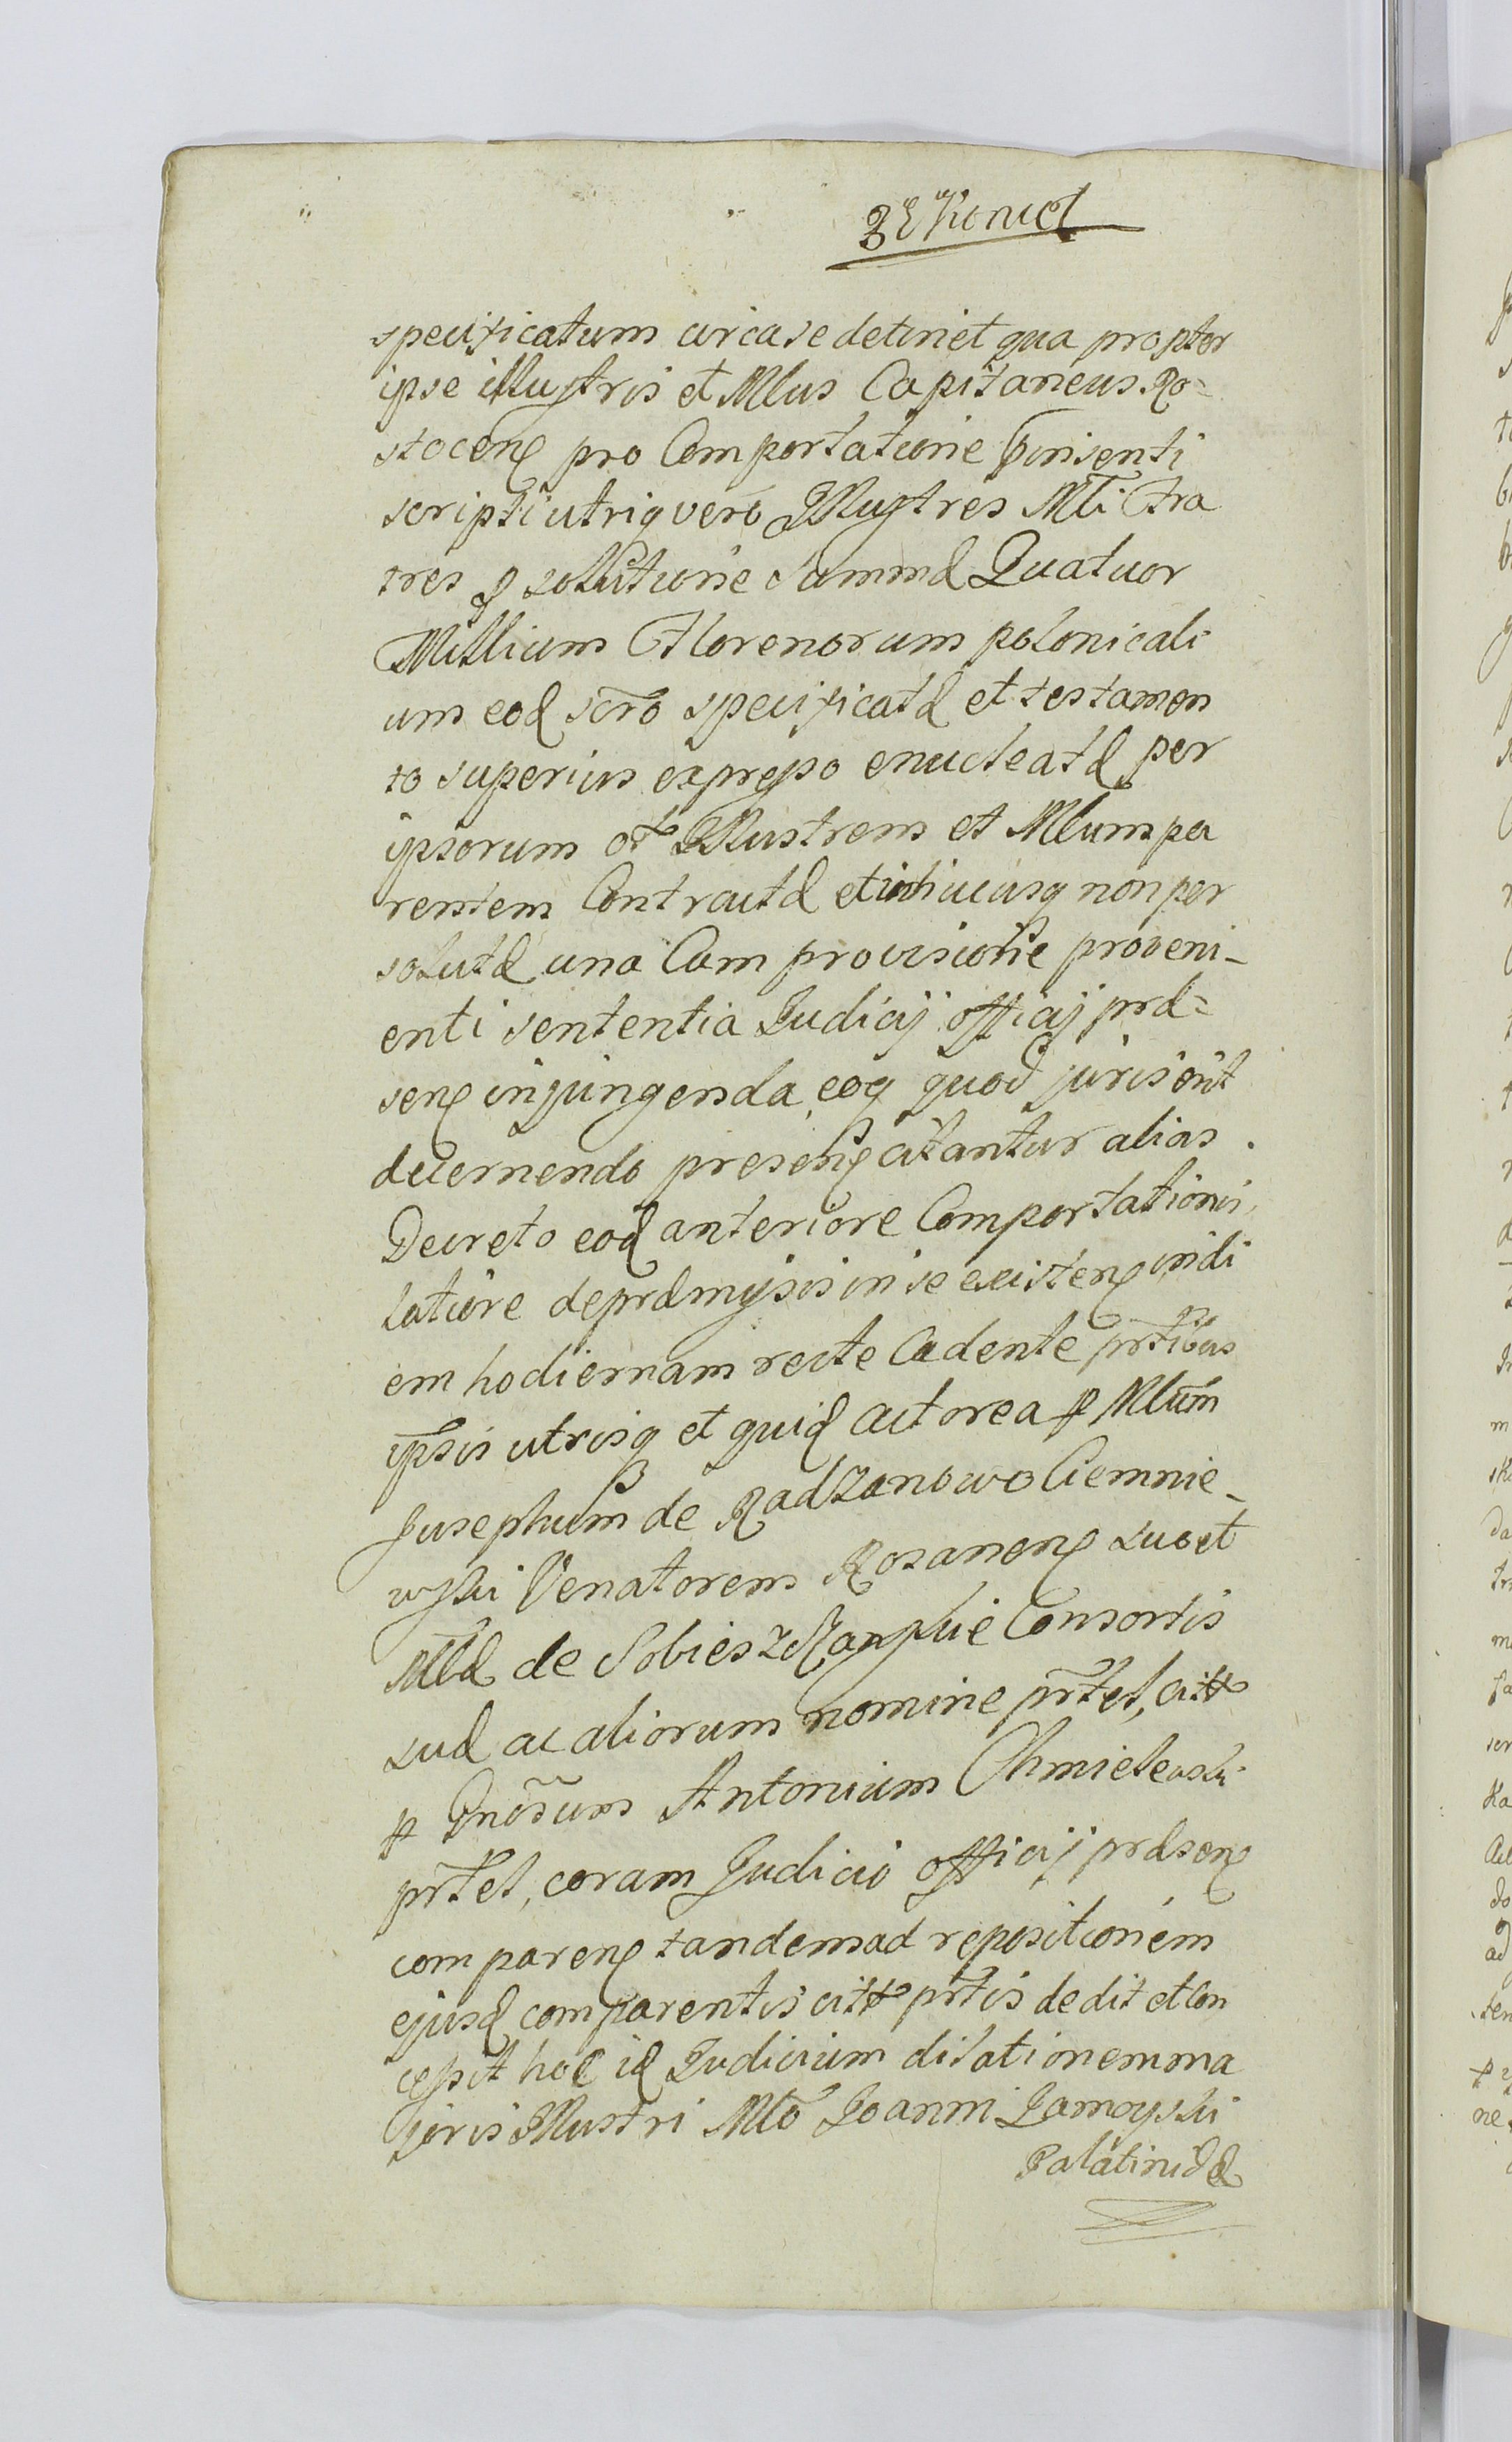 specificatum circa se detinet qua propter
ipse illustris et Mlus Capitaneus Ro=
stocen pro Comportatione
scripti utriq vero Illustres Mli Fra
tres p solutione Summæ Quatuor
Millium Florenorum polonicali
um eod scro specificatæ et testamen
to superius expresso enucleatæ per
ipsorum ol Illustrem et Mlum pa
rentem Contractæ et in hucusq non per
solutæ una Cum provisione proveni-
enti sententia Judicij officij præ=
sen injungenda eoq quod juris erit
decernendo presen citantur alias
Decreto eod anteriore Comportationis
latiore de præmissis in se existen in di
em hodiernam recte Cadente prtibus
ipsis utrisq et quid actorea p Mlum
Josephum de Radzanowo Ciemnie-
wski Venatorem Rozanen suo et
Mlæ de Sobieszczanskie Consortis
suæ ac aliorum nomine prtel, citt
p Gnosum Antonium Chmielewski
prtel, coram Judicio officij præsen
comparen tandem ad repositionem
ejusd comparentis citt prtis dedit et Con
cessit hoc id Judicium dilationem ma
joris Illustri Mlo Joanni Zamoyski
Palatinidæ